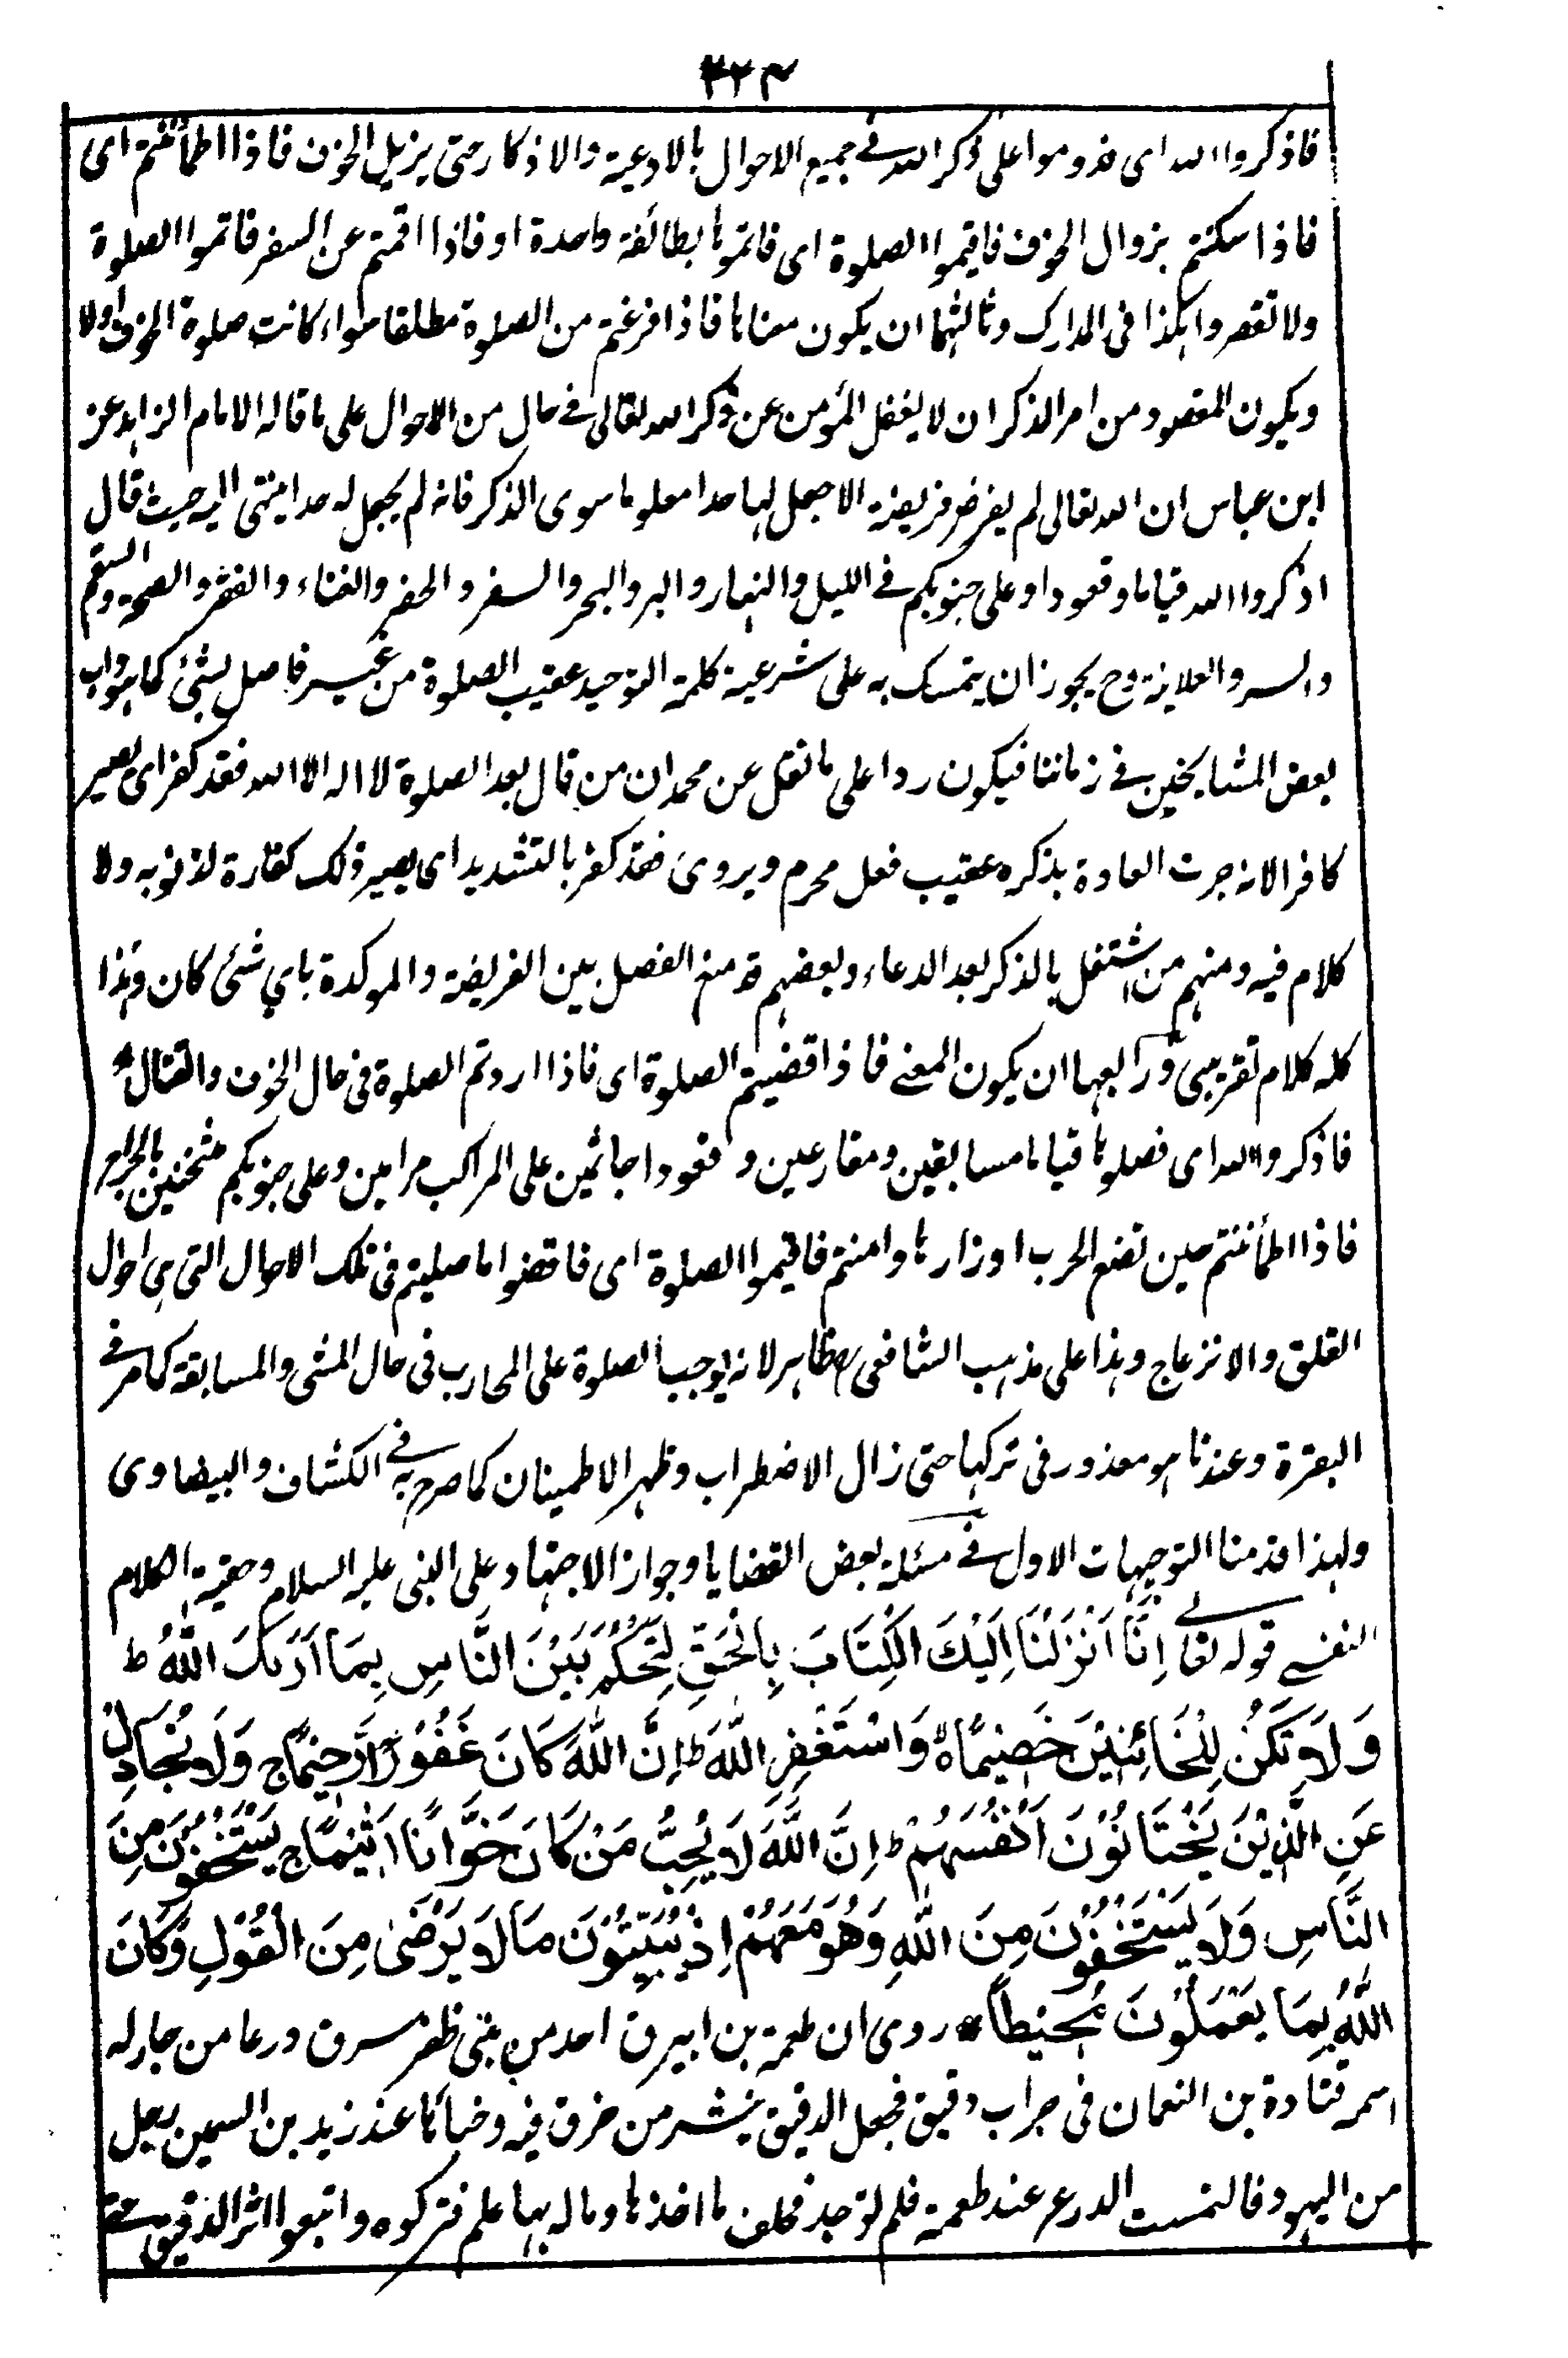 ٣٢٣
فاذكروا الله اى فدوموا على ذكر الله فے جميع الاحوال بالادعية والاذكار حتى يزيل الخوف فاذا اطمأننتم اى
فاذا سكنتم بزوال الخوف فاقيموا الصلوة اى فاتموها بطائفة واحدة او فاذا اقمتم عن السفر فاتموا الصلوة
ولا تقصروا هكذا فى المدارك وثالثها ان يكون معناها فاذا فرغتم من الصلوة مطلقا سواء كانت صلوة الخوف اولا
ويكون المقصود من امر الذكر ان لا يغفل المؤمن عن ذكر الله تعالى فے حال من الاحوال على ما قاله الامام الزاهد عن
ابن عباس ان الله تعالى لم يفرض فريضة الا جعل لها حدا معلوما سوى الذكر فانه لم يجعل له حدا ينتهى اليه حيث قال
اذكروا الله قياما وقعودا وعلى جنوبكم فے الليل والنهار والبر والبحر والسفر والحضر والغناء والفقر والصحة والسقم
والسر والعلانية وح يجوز ان يتمسك به على شرعية كلمة التوحيد عقيب الصلوة من غير فاصل بشئ كما هو داب
بعض المشايخين فے زماننا فيكون ردا على ما نقل عن محمد ان من قال بعد الصلوة لا اله الا الله فقد كفر اى يصير
كافرا لانه جرت العادة بذكره عقيب فعل محرم ويروى فقد كفر بالتشديد اى يصير ذلك كفارة لذنوبه ولا
كلام فيه ومنهم من اشتغل بالذكر بعد الدعاء وبعضهم قد منع الفصل بين الفريضة والموكدة باي شئ كان وهذا
كله كلام تقريبى ورابعها ان يكون المعنے فاذا قضيتم الصلوة اى فاذا اردتم الصلوة فى حال الخوف والقتال
فاذكروا الله اى فصلوها قياما مسابقين ومقارعين وقعودا جاثمين على المراكب مرامين وعلى جنوبكم مثخنين بالجراح
فاذا اطمأننتم حين تضع الحرب اوزارها وامنتم فاقيموا الصلوة اى فاقضوا ما صليتم فى تلك الاحوال التى هى احوال
القلق والانزعاج وهذا على مذهب الشافعى رح ظاهر لانه يوجب الصلوة على المحارب فى حال المشى والمسابقة كما مر فے
البقرة وعندنا هو معذور فى تركها حتى زال الاضطراب وظهر الاطمينان كما صرح به فے الكشاف والبيضاوى
ولهذا قدمنا التوجيهات الاول فے مسئلة بعض القضايا وجواز الاجتهاد على النبى عليه السلام وحقية الكلام
النفسے قوله تعالے اِنَّا اَنْزَلْنَا اِلَيْكَ الْكِتَابَ بِالْحَقِّ لِتَحْكُمَ بَيْنَ النَّاسِ بِمَا اَرٰىكَ اللّٰهُ ط
وَلَا تَكُنْ لِلْخَائِنِيْنَ خَصِيْمًا ۙ وَاسْتَغْفِرِ اللّٰهَ ط اِنَّ اللّٰهَ كَانَ غَفُوْرًا رَحِيْمًا ج وَلَا تُجَادِلْ
عَنِ الَّذِيْنَ يَخْتَانُوْنَ اَنْفُسَهُمْ ط اِنَّ اللّٰهَ لَا يُحِبُّ مَنْ كَانَ خَوَّانًا اَثِيْمًا ج يَسْتَخْفُوْنَ مِنَ
النَّاسِ وَلَا يَسْتَخْفُوْنَ مِنَ اللّٰهِ وَهُوَ مَعَهُمْ اِذْ يُبَيِّتُوْنَ مَا لَا يَرْضٰى مِنَ الْقَوْلِ وَكَانَ
اللّٰهُ بِمَا يَعْمَلُوْنَ مُحِيْطًا * روى ان طعمة بن ابيرق احد من بنى ظفر سرق درعا من جار له
اسمه قتادة بن النعمان فى جراب دقيق فجعل الدقيق ينتشر من خرق فيه وخبأها عند زيد بن السمين رجل
من اليهود فالتمست الدرع عند طعمة فلم توجد فحلف ما اخذها وما له بها علم فتركوه واتبعوا اثر الدقيق حتے